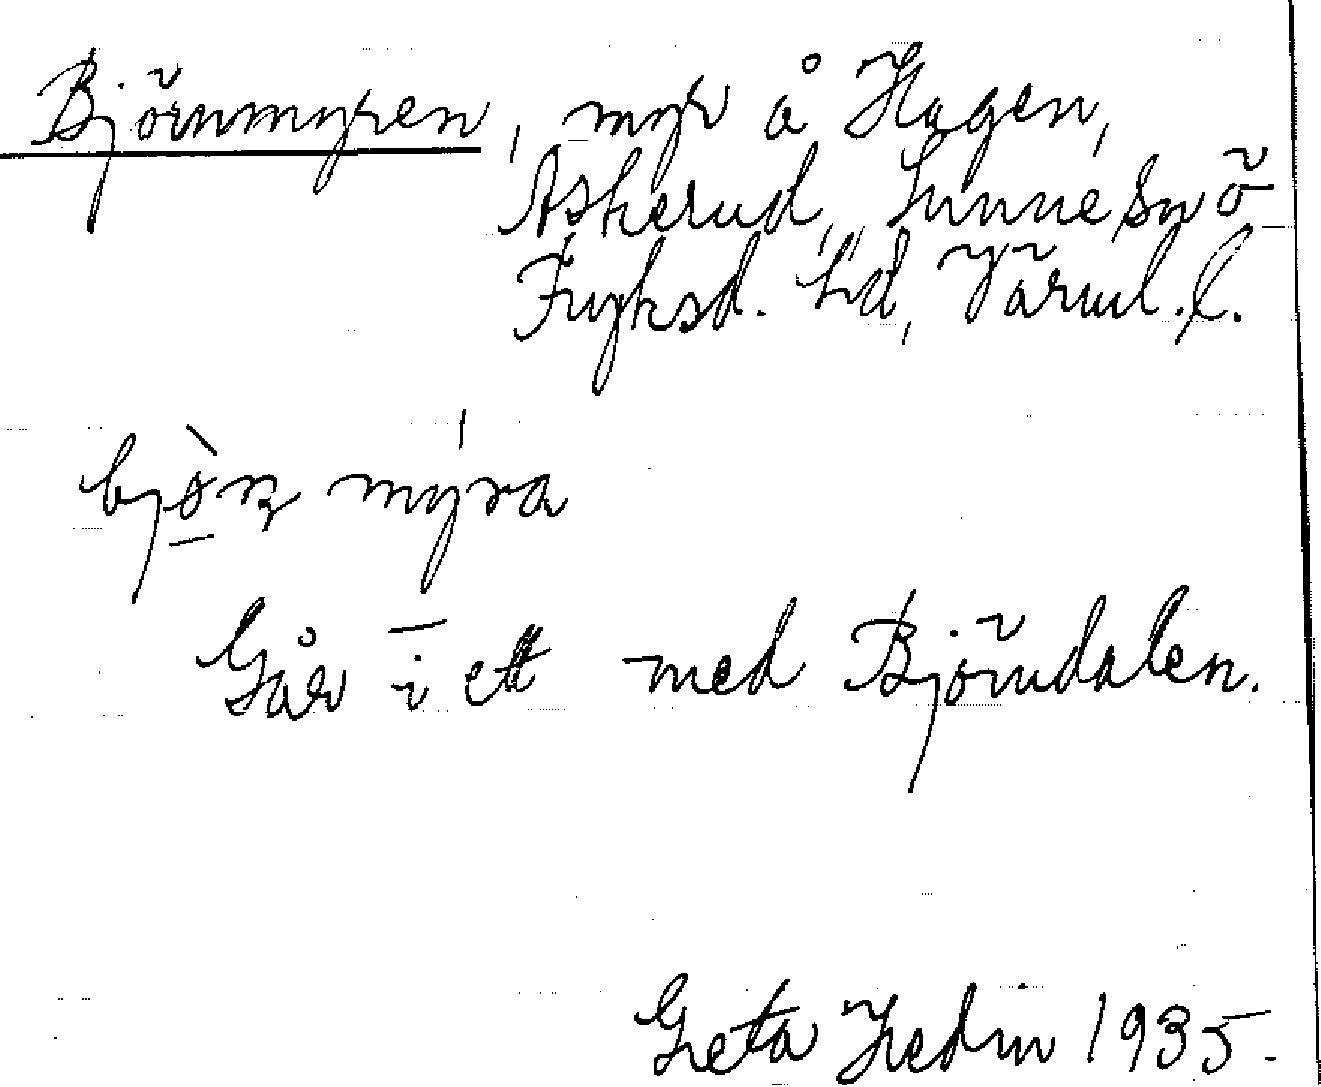 Björnmyren, myr å Hagen,
Askerud, Sunne sn ö
Fryksd. hd, Värml. l.
bjò̠ɳ mýra
Går i ett med Björndalen.
Greta Hedin 1935.